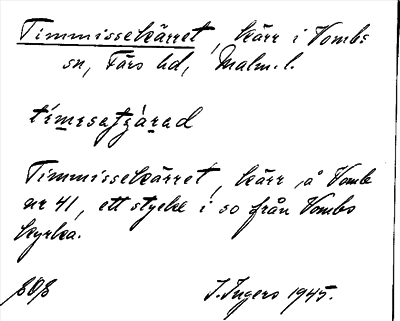 Timmissekärret, kärr i Vombs
sn, Färs hd, Malm. l.
Timmissekärret, kärr å Vomb
nr 41, ett stycke i so från Vombs
kyrka.
I. Ingers 1945.